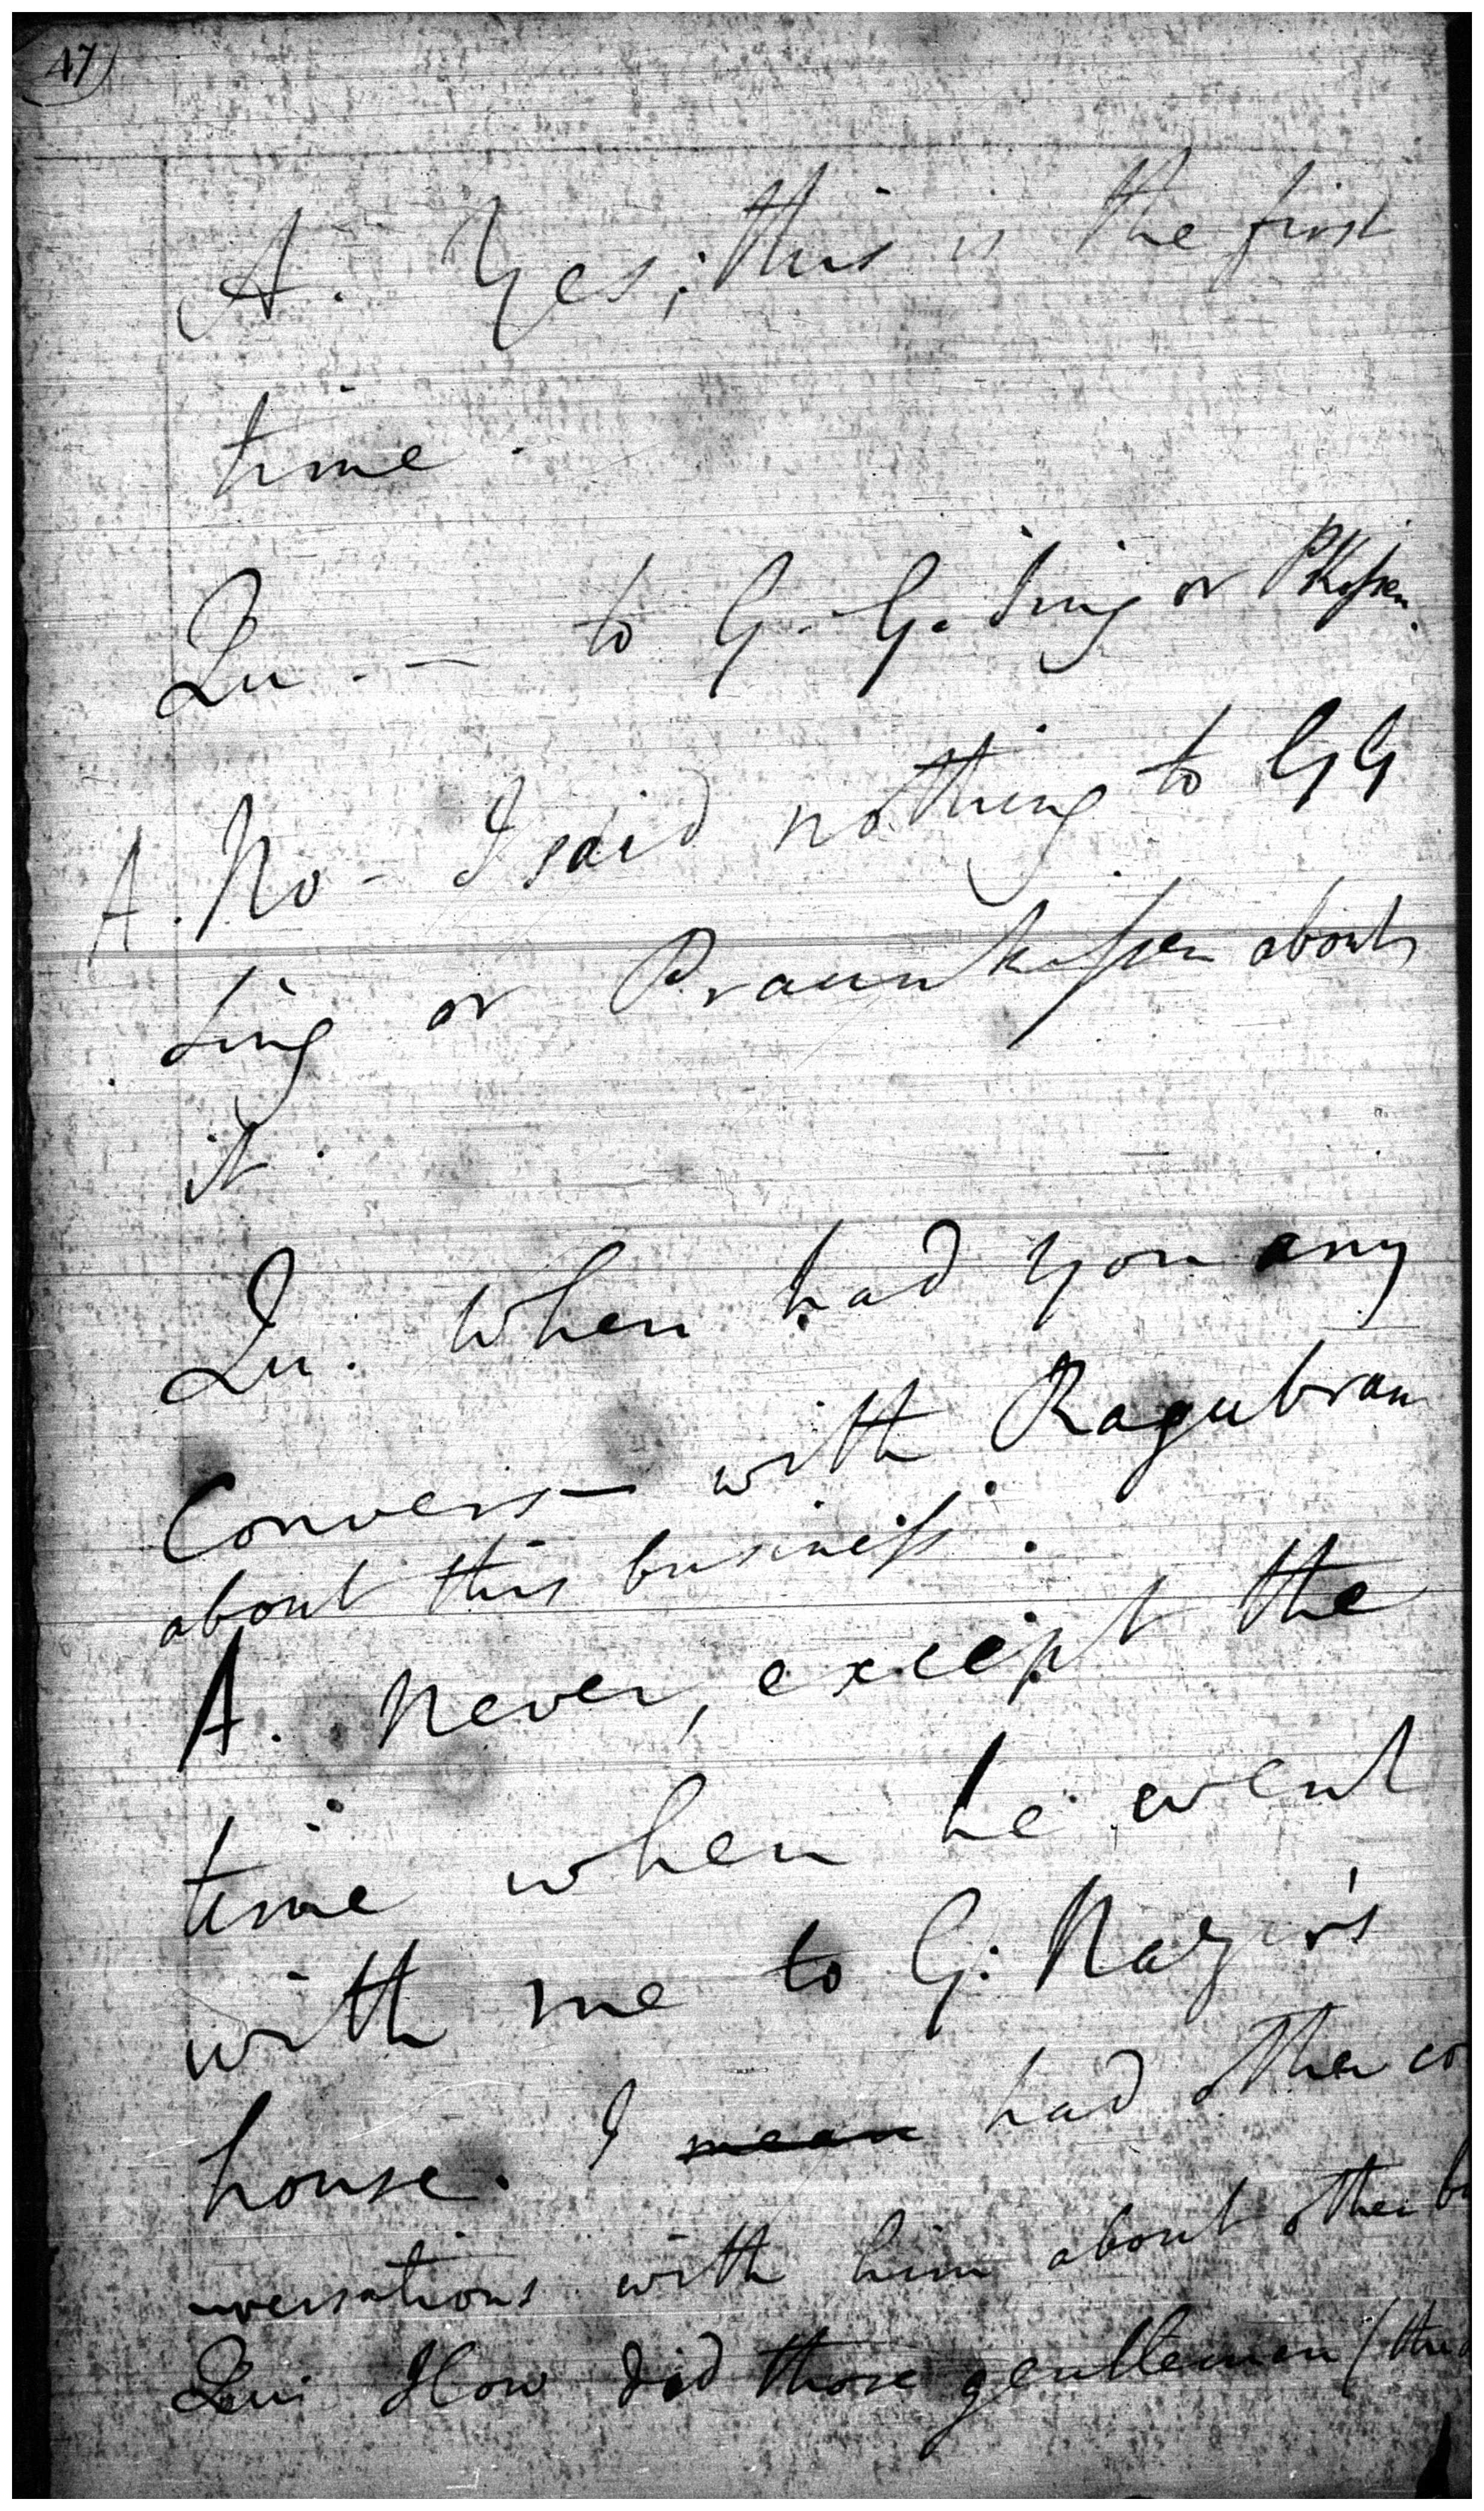 47)
A. Yes; this is the first
time.
Qu. — to G. G. Sing or P Kissen.
A. No - I said nothing to GG
Sing or Praunkissen about
it.
Qu. When had you any
Convers— with Ragubram
about this business.
A. Never, except the
time when he went
with me to G. Nazir's
house. I mean had other co
nversations with him about other bu
Qu: How did those gentlemen (the